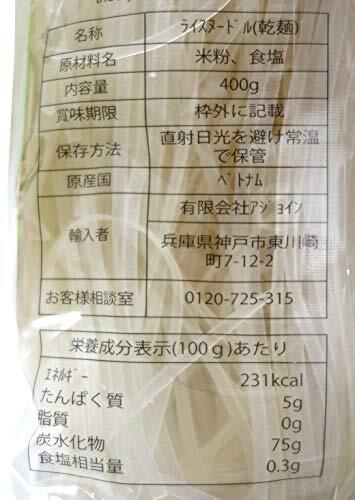 名称 ﾗｲｽﾇｰﾄﾞﾙ(乾麺)
原材料名 米粉、食塩
内容量 400g
賞味期限 枠外に記載
保存方法 直射日光を避け常温
で保管
原産国 ﾍﾞﾄﾅﾑ
輸入者 有限会社ｱｼﾞｮｲﾝ
兵庫県神戸市東川崎
町7-12-2
お客様相談室 0120-725-315
栄養成分表示(100g)あたり
ｴﾈﾙｷﾞｰ 231kcal
たんぱく質 5g
脂質 0g
炭水化物 75g
食塩相当量 0.3g